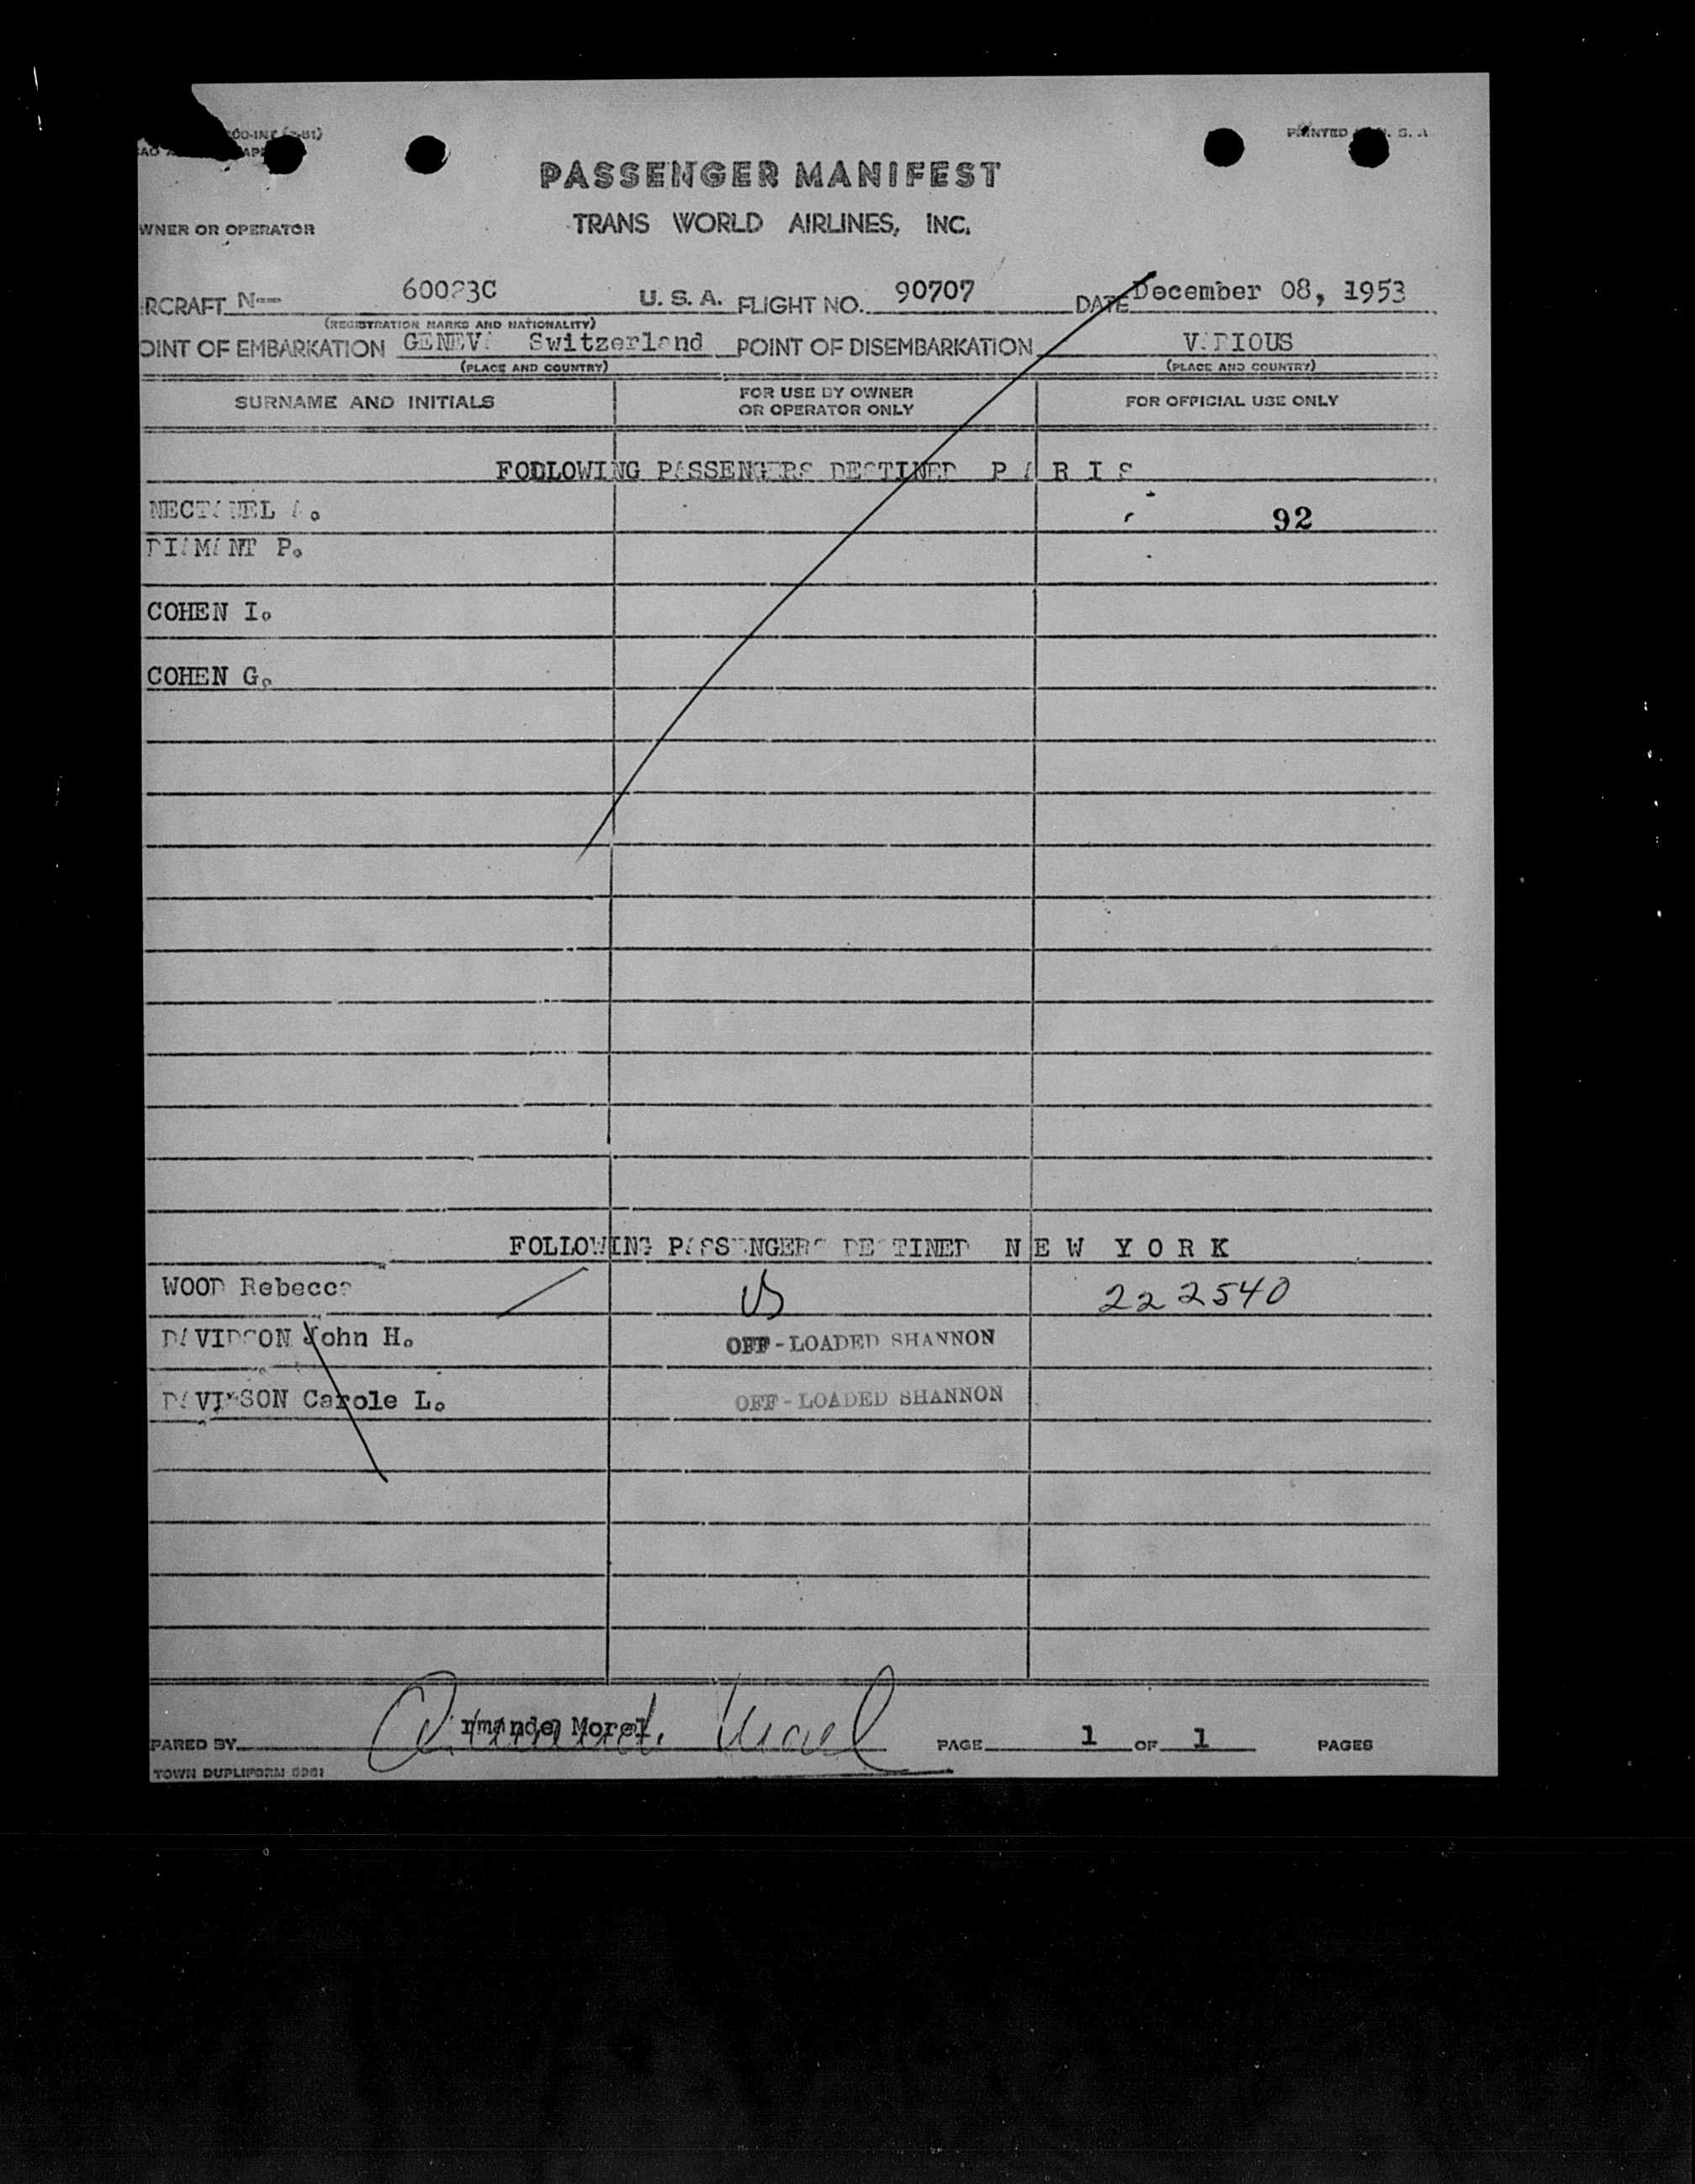 PRINTED S. A
PASSENGER MANIFEST
WNER OR OPERATOR TRANS WORLD AIRLINES, INC.
RCRAFT N-- 60023C U. S. A. FLIGHT NO. 90707 DATE December 08, 1953
(REGISTRATION MARKS AND NATIONALITY)
OINT OF EMBARKATION GENEVA Switzerland POINT OF DISEMBARKATION VARIOUS
(PLACE AND COUNTRY) (PLACE AND COUNTRY)
SURNAME AND INITIALS FOR USE BY OWNER OR OPERATOR ONLY FOR OFFICIAL USE ONLY
FODLOWING PASSENGERS DESTINED P A R I S
92
DIAMANT P.
COHEN I.
COHEN G.
FOLLOWING PASSENGERS DESTINED N E W Y O R K
WOOD Rebecca 222540
DAVIDSON John H. OFF-LOADED SHANNON
DAVIDSON Carole L. OFF-LOADED SHANNON
PARED BY Armande Morel. PAGE 1 OF 1 PAGES
TOWN DUPLIFORM